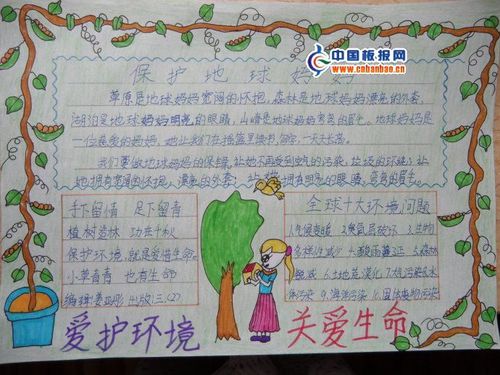 中国板报网
www.cnbanbao.cn
保护地球妈妈
草原是地球妈妈宽阔的怀抱，森林是地球妈妈漂亮的外套，
湖泊是地球妈妈明亮的眼睛，山峰是地球妈妈弯弯的眉毛。地球妈妈是
一位慈爱的妈妈，她让我们在摇篮里读书，一天天长高。
我们要做地球妈妈的保镖，让她不再受到的污染，垃圾的环绕；让
她拥有宽阔的怀抱，漂亮的外套；让她拥有明亮的眼睛，弯弯的眉毛。
手下留情 足下留青
植树造林 功在千秋
保护环境，就是爱惜生命。
小草青青 也有生命
编辑 出版：三.(2)
全球十大环境问题
1.气候变暖 2.臭氧层破坏 3.生物
多样性减少 4.酸雨蔓延 5.森林
锐减 6.土地荒漠化 7.大气污染 8.水
体污染 9.海洋污染 10.固体废物污染
爱护环境
关爱生命